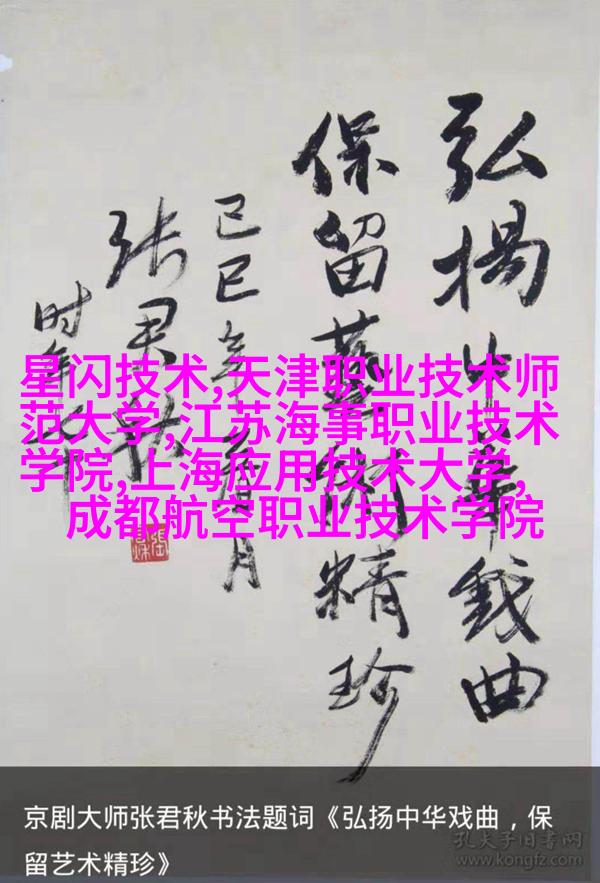 弘揚中華戲曲
保留藝術精珍
己巳年春月
张君秋
时年
星闪技术,天津职业技术师
范大学,江苏海事职业技术
学院,上海应用技术大学,
成都航空职业技术学院
京剧大师张君秋书法题词《弘扬中华戏曲，保
留艺术精珍》
孔夫子旧书网
www.kongfz.com